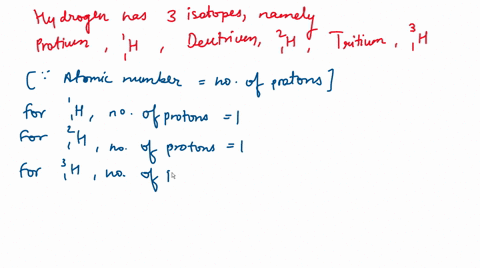 Hydrogen has 3 isotopes, namely
Protium, ¹₁H, Deutrium, ²₁H, Tritium, ³₁H
[∵ Atomic number = no. of protons]
For ¹₁H, no. of protons = 1
For ²₁H, no. of protons = 1
For ³₁H, no. of